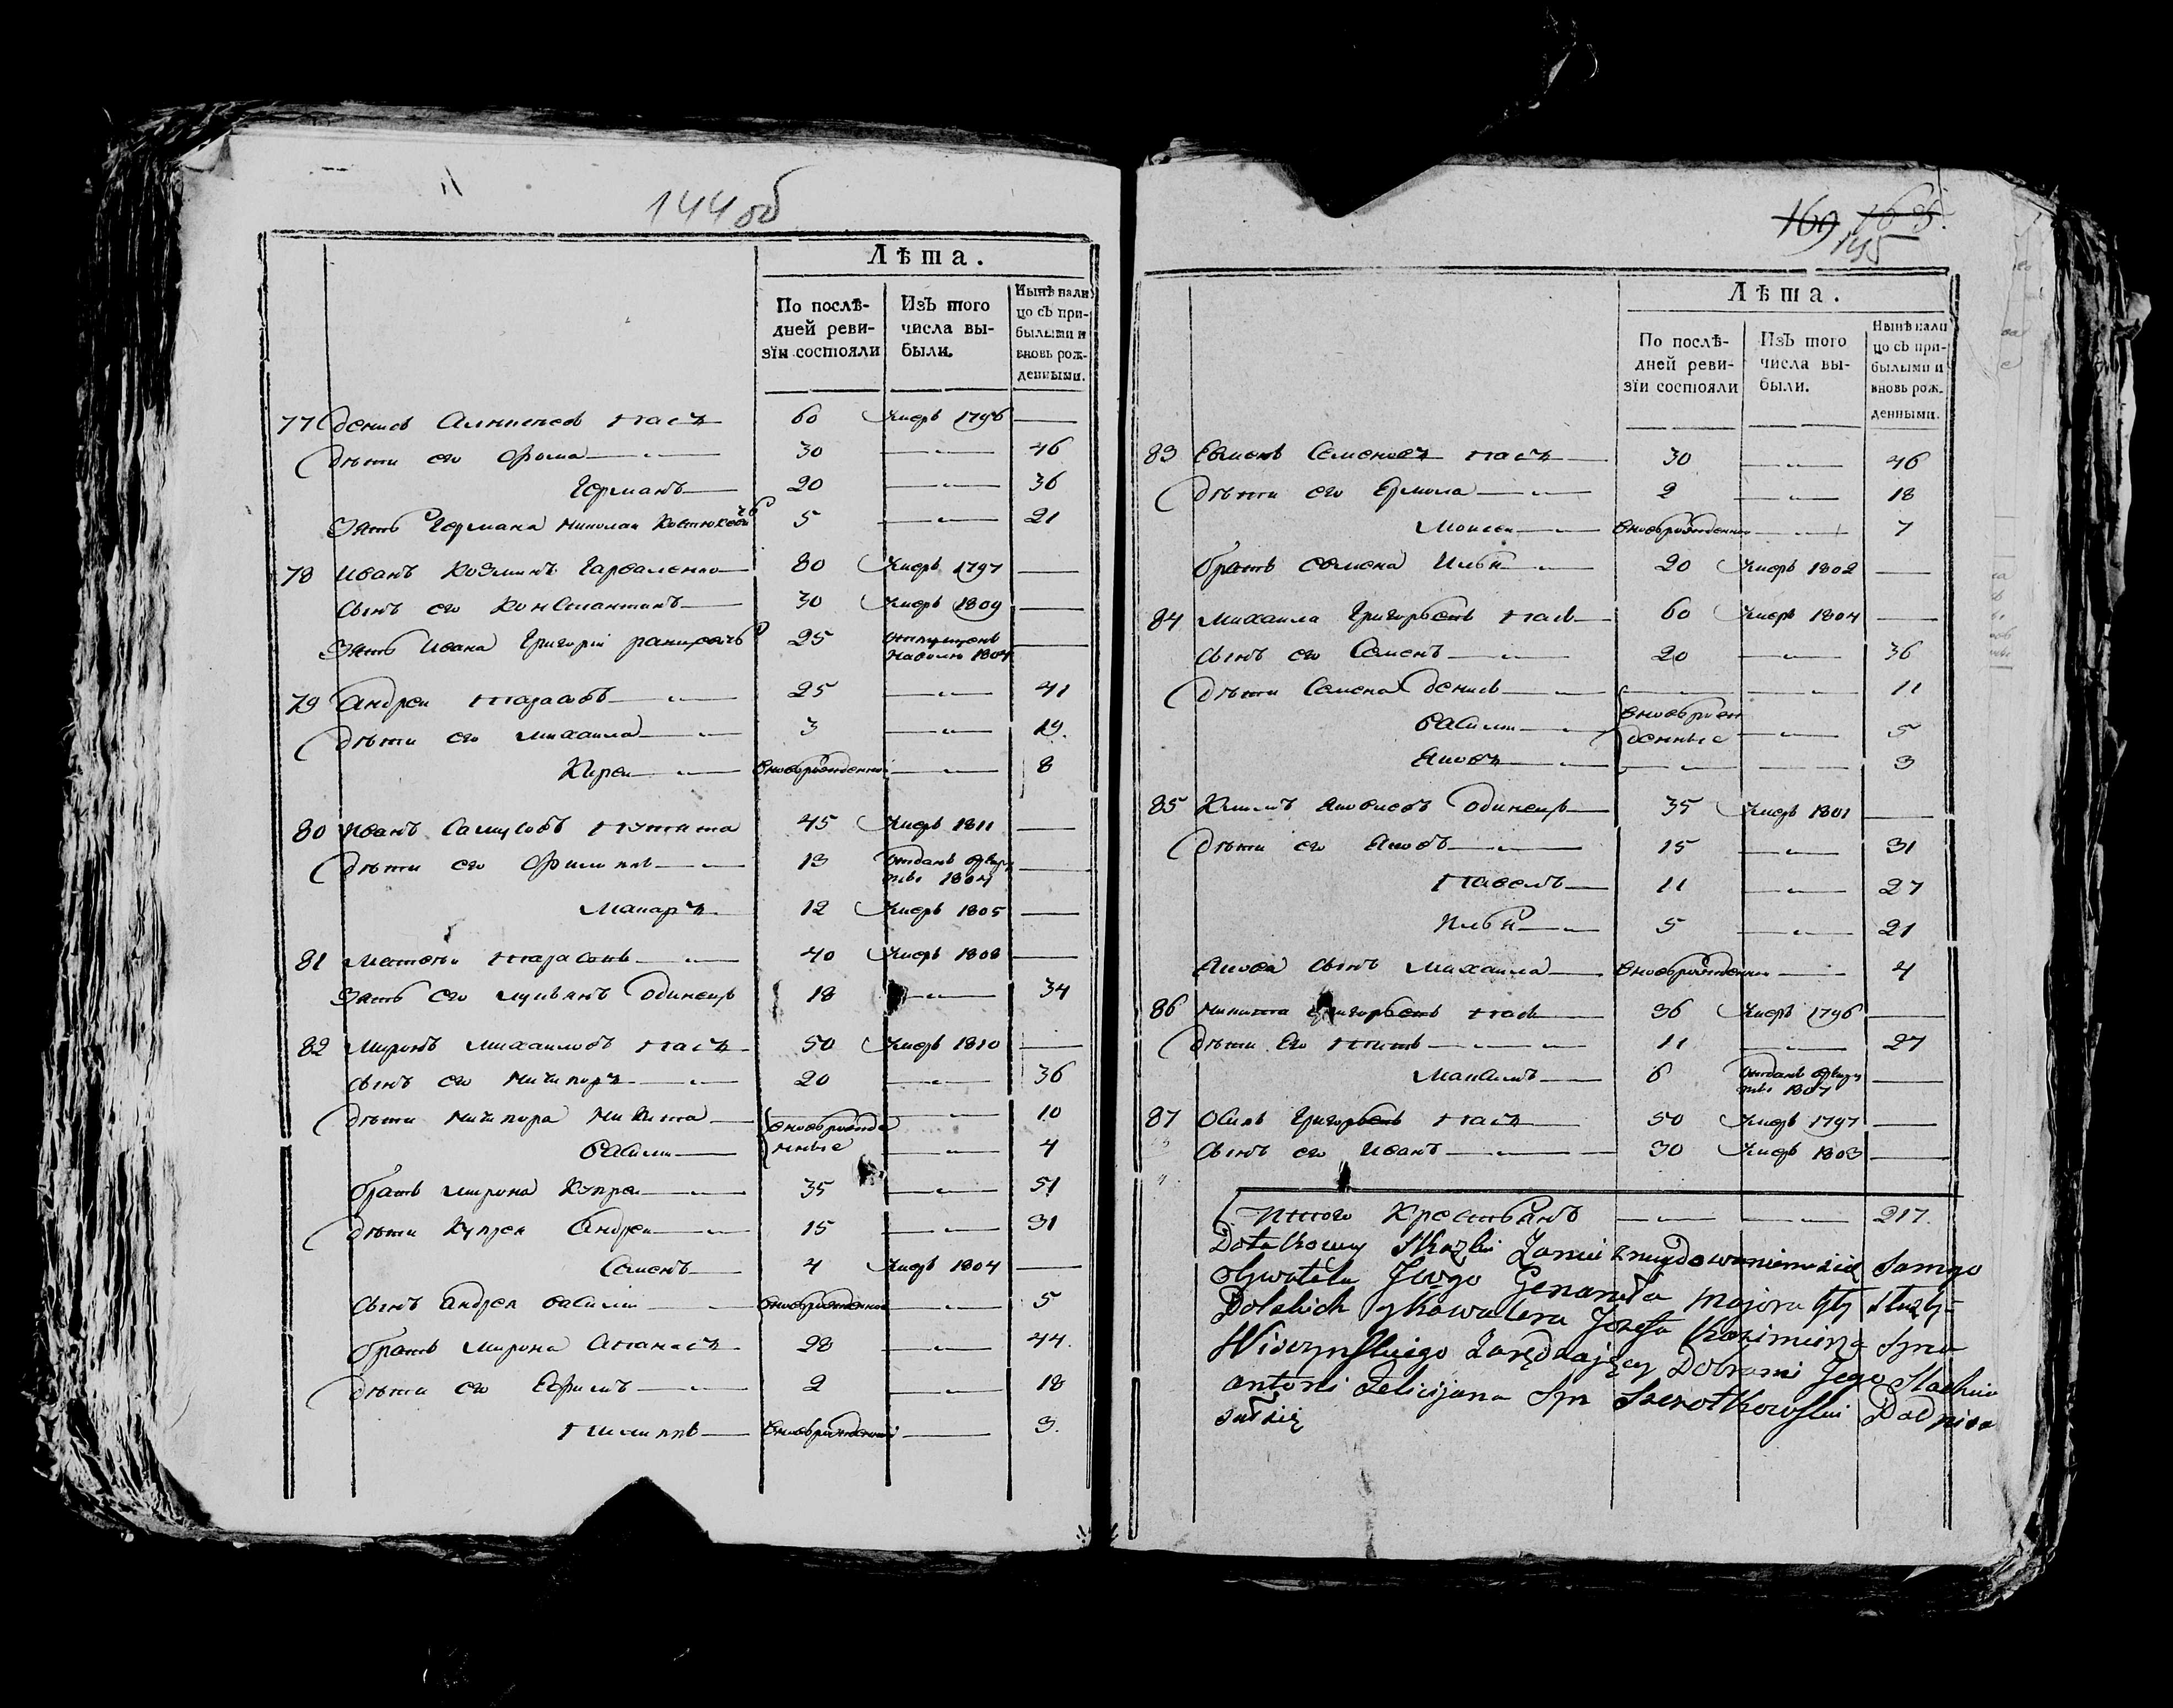 144 об
Лѣта.
По послѣ-
дней реви-
зїи состояли
Изъ того
числа вы-
были.
Нынѣ нали
цо съ при-
былыми и
вновь рож-
денными.
77 денисъ пасъ 60 умеръ 1796 —
дѣти его Фома 30 — 46
Германъ 20 — 36
Зять Германа Николай 5 — 21
78 Иванъ Козминъ 80 умеръ 1797 —
сынъ его Константинъ 30 умеръ 1809 —
Зять Ивана Григорій 25 отпущенъ
наволю 1804 —
79 Андрей тарасовъ 25 — 41
дѣти его михаила 3 — 19.
Кирей вновьрожденный — 8
80 Иванъ 45 умеръ 1811 —
дѣти его Филиппъ 13 отданъ врекру
ты 1804 —
Макаръ 12 умеръ 1805 —
81 Матвей тарасовъ 40 умеръ 1808 —
Зять его лукьянъ одинецъ 18 — 34
82 Миронъ михаиловъ пасъ 50 умеръ 1810 —
сынъ его Ничипоръ 20 — 36
дѣти Ничипора Никита вновьрожде — 10
василий нные — 4
братъ мирона Купрей 35 — 51
дѣти Купрея Андрей 15 — 31
Семенъ 4 умеръ 1804 —
сынъ андрея василий вновьрожденный — 5
братъ мирона Апанасъ 28 — 44.
дѣти его Ефимъ 2 — 18
Филиппъ вновьрожденный — 3.
169 168.
145
Лѣта.
По послѣ-
дней реви-
зїи состояли
Изъ того
числа вы-
были.
Нынѣ нали
цо съ при-
былыми и
вновь рож-
денными.
83 Семеновъ пасъ 30 — 46
дѣти его Ермола 2 — 18
Моисей вновьрожденный — 7
братъ семена Илья 20 умеръ 1802 —
84 Михаила Григорьевъ пасъ 60 умеръ 1804 —
сынъ его Семенъ 20 — 36
дѣти Семена денисъ — — 11
василий вновьрож
денные — 5
Яковъ — — 3
85 Климъ одинецъ 35 умеръ 1801 —
дѣти его Яковъ 15 — 31
Павелъ 11 — 27
Илья 5 — 21
Якова сынъ михаила вновьрожденный — 4
86 Никита григорьевъ пасъ 36 умеръ 1796 —
дѣти Его титъ 11 — 27
Максимъ 6 отданъ врекру
ты 1807 —
87 Осипъ Григорьевъ пасъ 50 умеръ 1797 —
сынъ его иванъ 30 умеръ 1803 —
Итого Крестьянъ — — 217.
Skazki samego
Jego Generała Majora
Polskich y Kawalera Jozefa Kazimierza Syna
Dobrami Jego
Antoni Felicijana Syn Podpisa